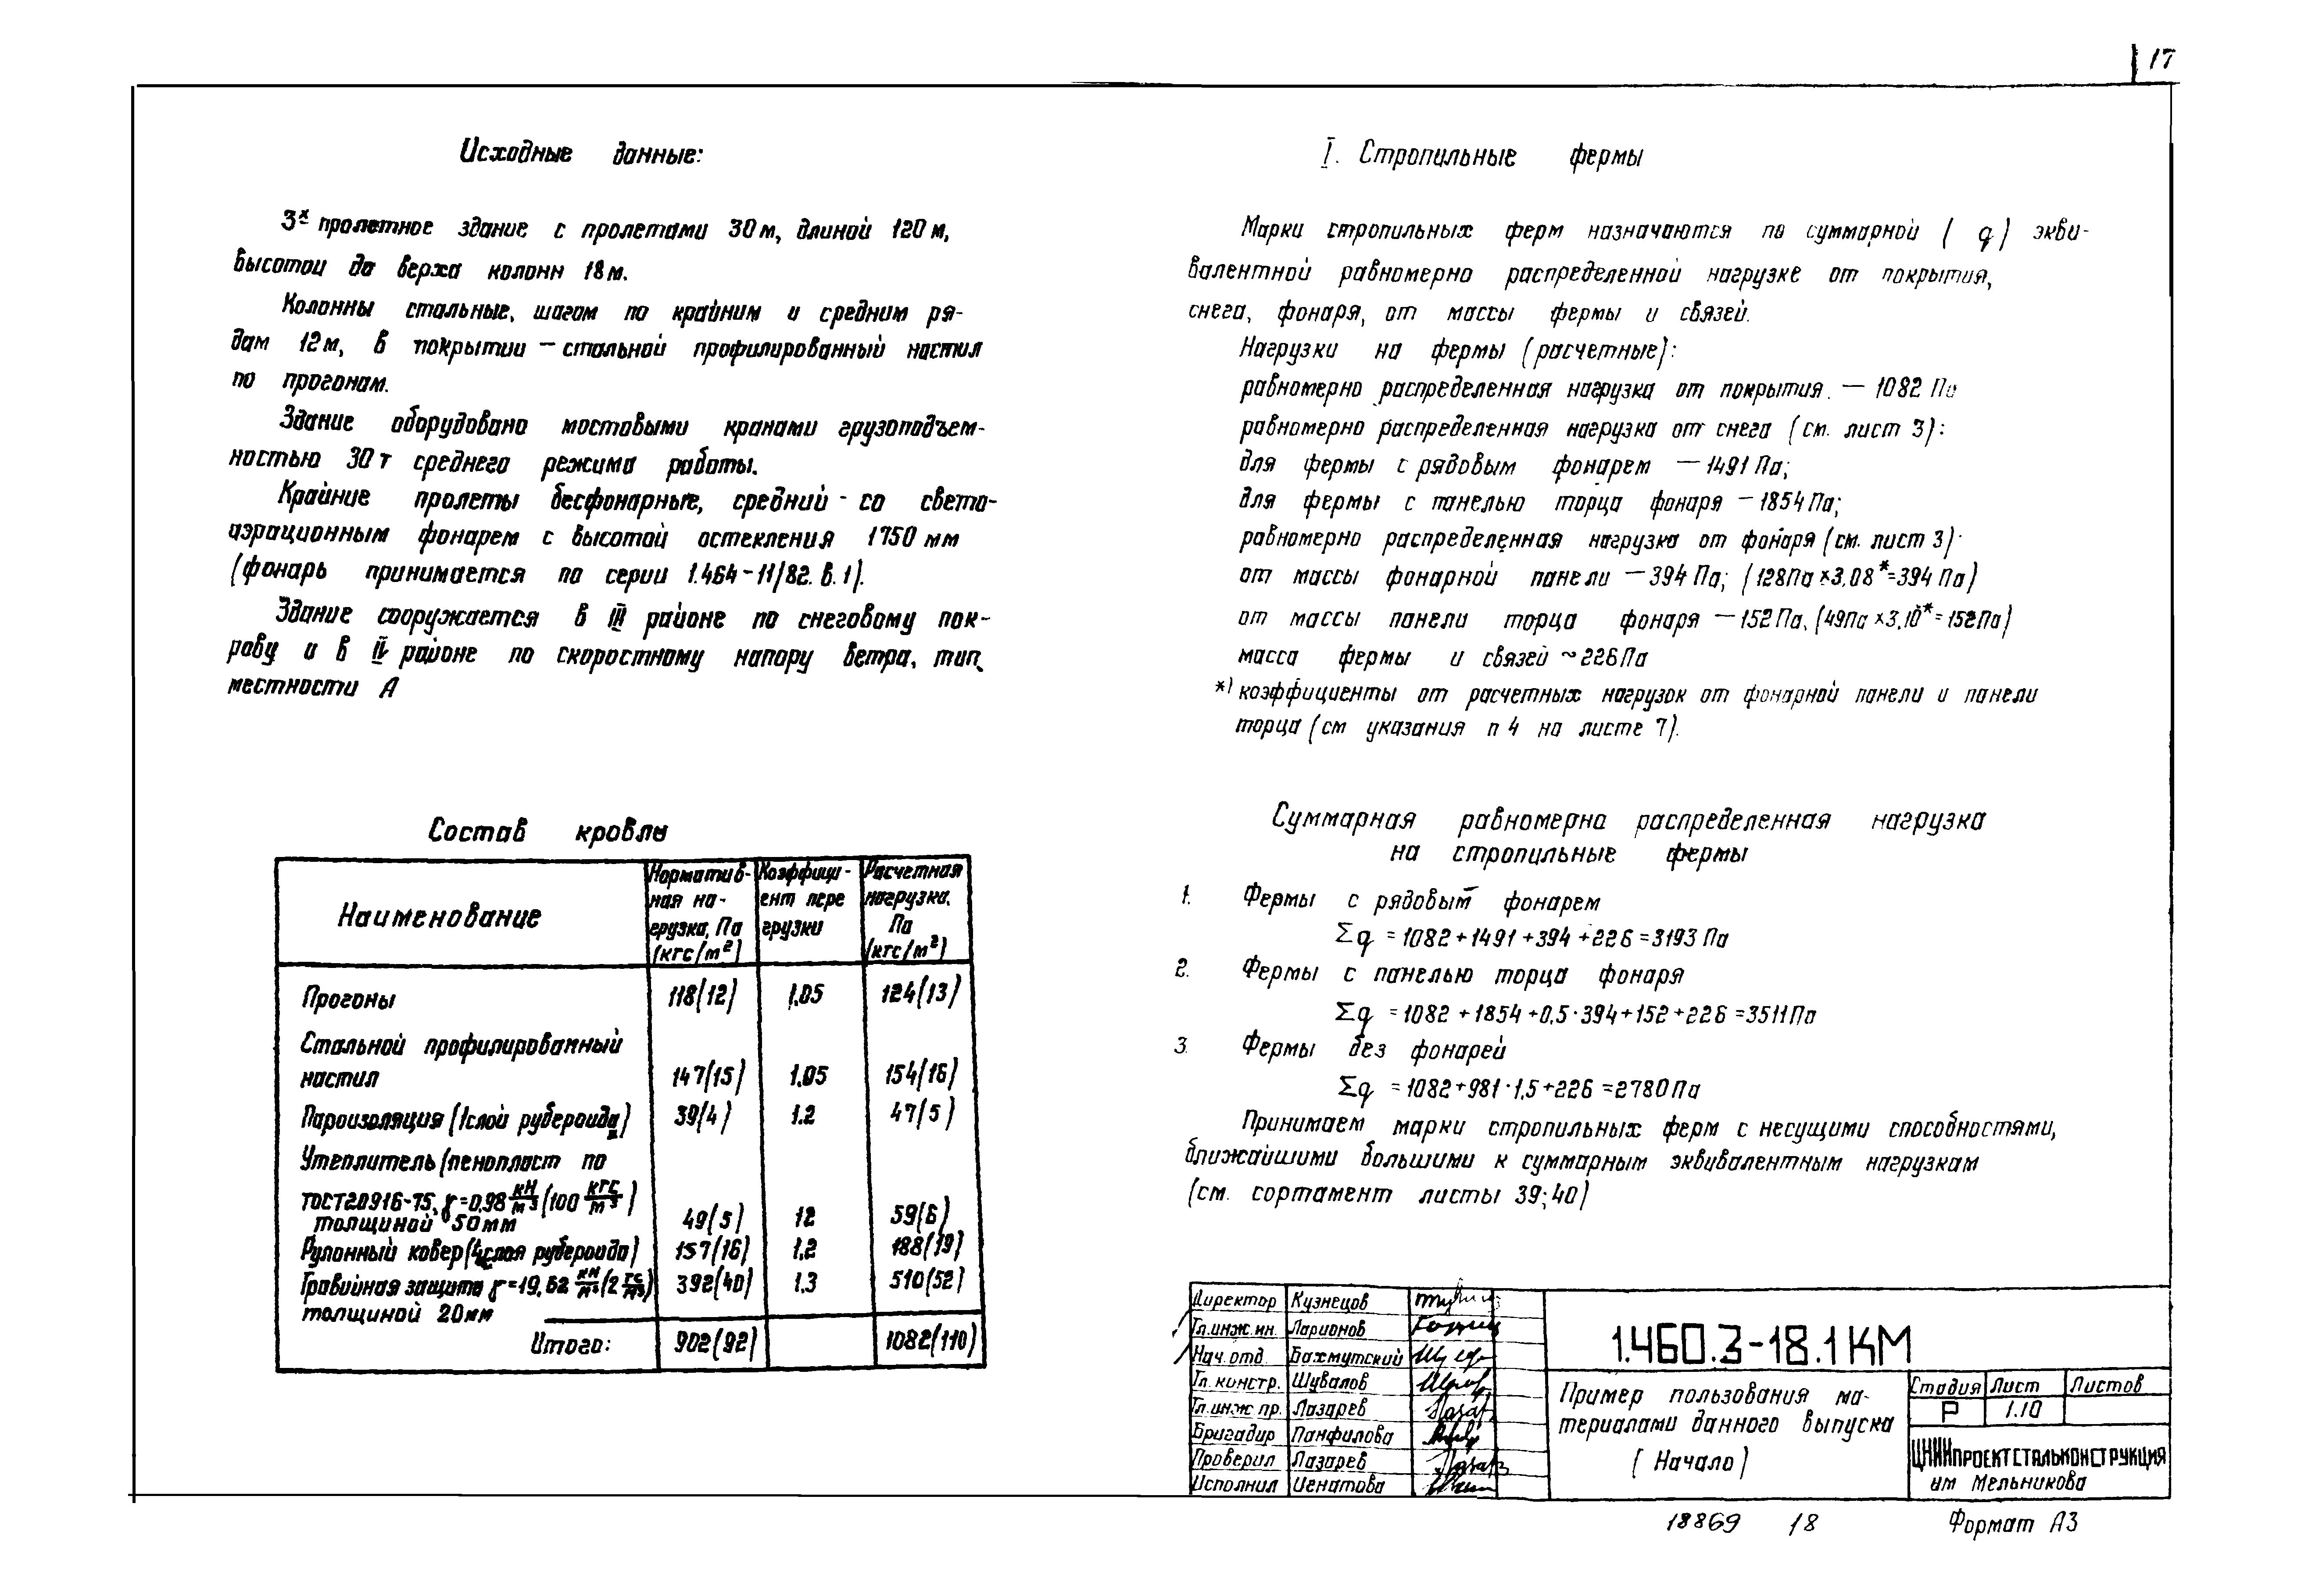 17
Исходные данные:
3х пролетное здание с пролетами 30 м, длиной 120 м,
высотой до верха колонн 18 м.
Колонны стальные, шагом по крайним и средним ря-
дам 12 м, в покрытии — стальной профилированный настил
по прогонам.
Здание оборудовано мостовыми кранами грузоподъем-
ностью 30 т среднего режима работы.
Крайние пролеты бесфонарные, средний - со свето-
аэрационным фонарем с высотой остекления 1750 мм
(фонарь принимается по серии 1.464-11/82. в.1).
Здание сооружается в III районе по снеговому пок-
рову и в IV районе по скоростному напору ветра, тип
местности А
Состав кровли
Наименование | Норматив-ная на-грузка, Па (кгс/м²) | Коэффици-ент пере грузки | Расчетная нагрузка, Па (кгс/м²)
Прогоны 118(12) 1.05 124(13)
Стальной профилированный
настил 147(15) 1.05 154(16)
Пароизоляция (1слой рубероида) 39(4) 1.2 47(5)
Утеплитель (пенопласт по
ГОСТ20916-75, γ=0,98 кН/м³ (100 кгс/м³)
толщиной 50 мм 49(5) 12 59(6)
Рулонный ковер (4слоя рубероида) 157(16) 1.2 188(19)
Гравийная защита γ=19,62 кН/м³ (2 гс/м³) 392(40) 1.3 510(52)
толщиной 20мм
Итого: 902(92) 1082(110)
I. Стропильные фермы
Марки стропильных ферм назначаются по суммарной ( q ) экви-
валентной равномерно распределенной нагрузке от покрытия,
снега, фонаря, от массы фермы и связей.
Нагрузки на фермы (расчетные):
равномерно распределенная нагрузка от покрытия. — 1082 Па
равномерно распределенная нагрузка от снега (см. лист 3):
для фермы с рядовым фонарем — 1491 Па;
для фермы с панелью торца фонаря — 1854 Па;
равномерно распределенная нагрузка от фонаря (см. лист 3):
от массы фонарной панели — 394 Па; (128Па×3,08*=394 Па)
от массы панели торца фонаря — 152 Па, (49Па×3,10*=152Па)
масса фермы и связей ~ 226 Па
*) коэффициенты от расчетных нагрузок от фонарной панели и панели
торца (см указания п 4 на листе 7).
Суммарная равномерно распределенная нагрузка
на стропильные фермы
1. Фермы с рядовым фонарем
Σq = 1082 + 1491 + 394 + 226 = 3193 Па
2. Фермы с панелью торца фонаря
Σq = 1082 + 1854 + 0,5·394 + 152 + 226 = 3511 Па
3. Фермы без фонарей
Σq = 1082 + 981·1,5 + 226 = 2780 Па
Принимаем марки стропильных ферм с несущими способностями,
ближайшими большими к суммарным эквивалентным нагрузкам
(см. сортамент листы 39; 40)
Директор Кузнецов
Гл.инж.ин. Ларионов
Нач.отд. Бахмутский
Гл.констр. Шувалов
Гл.инж пр. Лазарев
Бригадир Панфилова
Проверил Лазарев
Исполнил Игнатова
1.460.3-18.1 КМ
Пример пользования ма-
териалами данного выпуска
(Начало)
Стадия Лист Листов
Р 1.10
ЦНИИПРОЕКТСТАЛЬКОНСТРУКЦИЯ
им Мельникова
18869 18
Формат А3